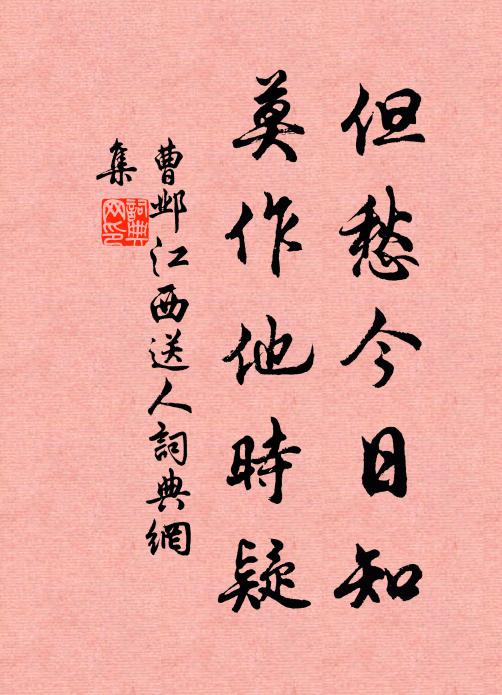 但愁今日知
莫作他時疑
曹邺江西送人詞典網
集
詞典网印